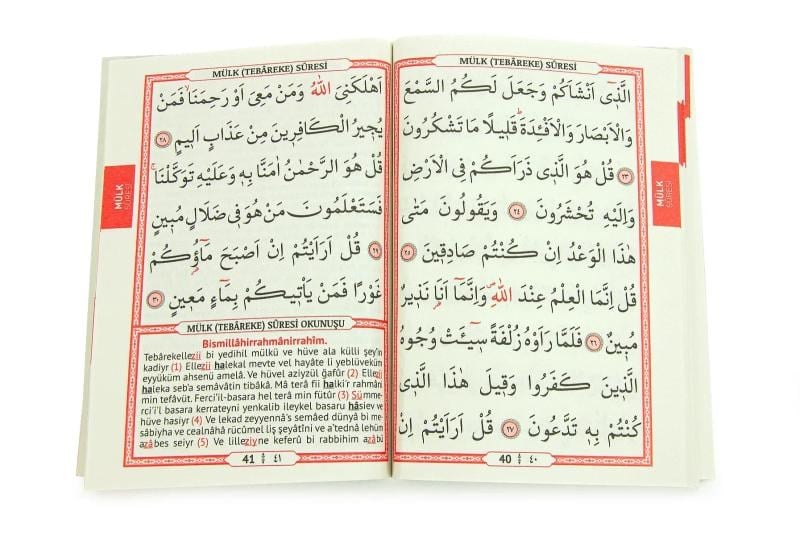 MÜLK (TEBÂREKE) SÛRESİ
الَّذٖٓى اَنْشَاَكُمْ وَجَعَلَ لَكُمُ السَّمْعَ
وَالْاَبْصَارَ وَالْاَفْـِٔدَةَؕ قَلٖيلًا مَا تَشْكُرُونَ
﴿٢٣﴾ قُلْ هُوَ الَّذٖى ذَرَاَكُمْ فِى الْاَرْضِ
وَاِلَيْهِ تُحْشَرُونَ ﴿٢٤﴾ وَيَقُولُونَ مَتٰى
هٰذَا الْوَعْدُ اِنْ كُنْتُمْ صَادِقٖينَ ﴿٢٥﴾
قُلْ اِنَّمَا الْعِلْمُ عِنْدَ اللّٰهِࣕ وَاِنَّمَٓا اَنَا۬ نَذٖيرٌ
مُبٖينٌ ﴿٢٦﴾ فَلَمَّا رَاَوْهُ زُلْفَةً سٖٓيـَٔتْ وُجُوهُ
الَّذٖينَ كَفَرُوا وَقٖيلَ هٰذَا الَّذٖى
كُنْتُمْ بِهٖ تَدَّعُونَ ﴿٢٧﴾ قُلْ اَرَاَيْتُمْ اِنْ
40 ٤٠
MÜLK
SÛRESİ
MÜLK (TEBÂREKE) SÛRESİ
اَهْلَكَنِىَ اللّٰهُ وَمَنْ مَعِىَ اَوْ رَحِمَنَاۙ فَمَنْ
يُجٖيرُ الْكَافِرٖينَ مِنْ عَذَابٍ اَلٖيمٍ ﴿٢٨﴾
قُلْ هُوَ الرَّحْمٰنُ اٰمَنَّا بِهٖ وَعَلَيْهِ تَوَكَّلْنَاۚ
فَسَتَعْلَمُونَ مَنْ هُوَ فٖى ضَلَالٍ مُبٖينٍ
﴿٢٩﴾ قُلْ اَرَاَيْتُمْ اِنْ اَصْبَحَ مَٓاؤُ۬كُمْ
غَوْرًا فَمَنْ يَاْتٖيكُمْ بِمَٓاءٍ مَعٖينٍ ﴿٣٠﴾
MÜLK (TEBÂREKE) SÛRESİ OKUNUŞU
Bismillâhirrahmânirrahîm.
Tebârekellezii bi yedihil mülkü ve hüve ala külli şey'in
kadiyr (1) Ellezii halekal mevte vel hayâte li yeblüveküm
eyyüküm ahsenü amelâ. Ve hüvel aziyzül ğafûr (2) Ellezii
haleka seb'a semâvâtin tibâkâ. Mâ terâ fii halki'r rahmâni
min tefâvüt. Ferci'il-basara hel terâ min fütûr (3) Sümmer-
rci'i'l basara kerrateyni yenkalib ileykel basaru hâsiev ve
hüve hasiyr (4) Ve lekad zeyyennâ's semâed dünyâ bi me-
sâbiyha ve cealnâhâ rücûmel liş şeyâtîni ve a'tednâ lehüm
azâbes seiyr (5) Ve lilleziyne keferû bi rabbihim azâbü
41 ٤١
MÜLK
SÛRESİ